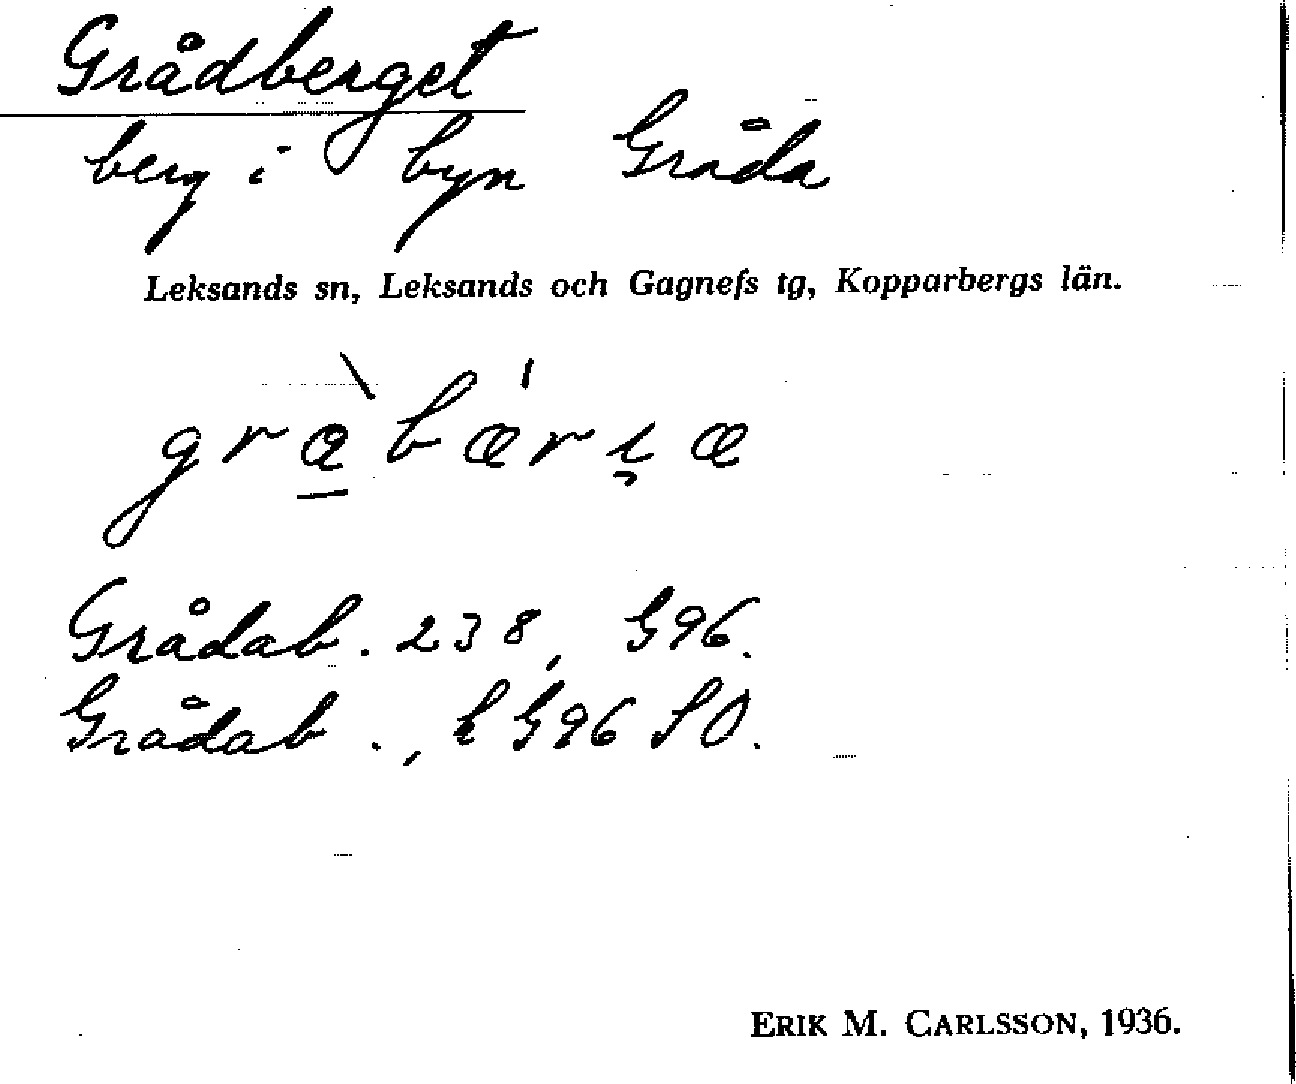 Grådberget
berg i byn Gråda
Leksands sn, Leksands och Gagnefs tg, Kopparbergs län.
Grådab. 238, G96.
Grådab., k G96 SO.
ERIK M. CARLSSON, 1936.